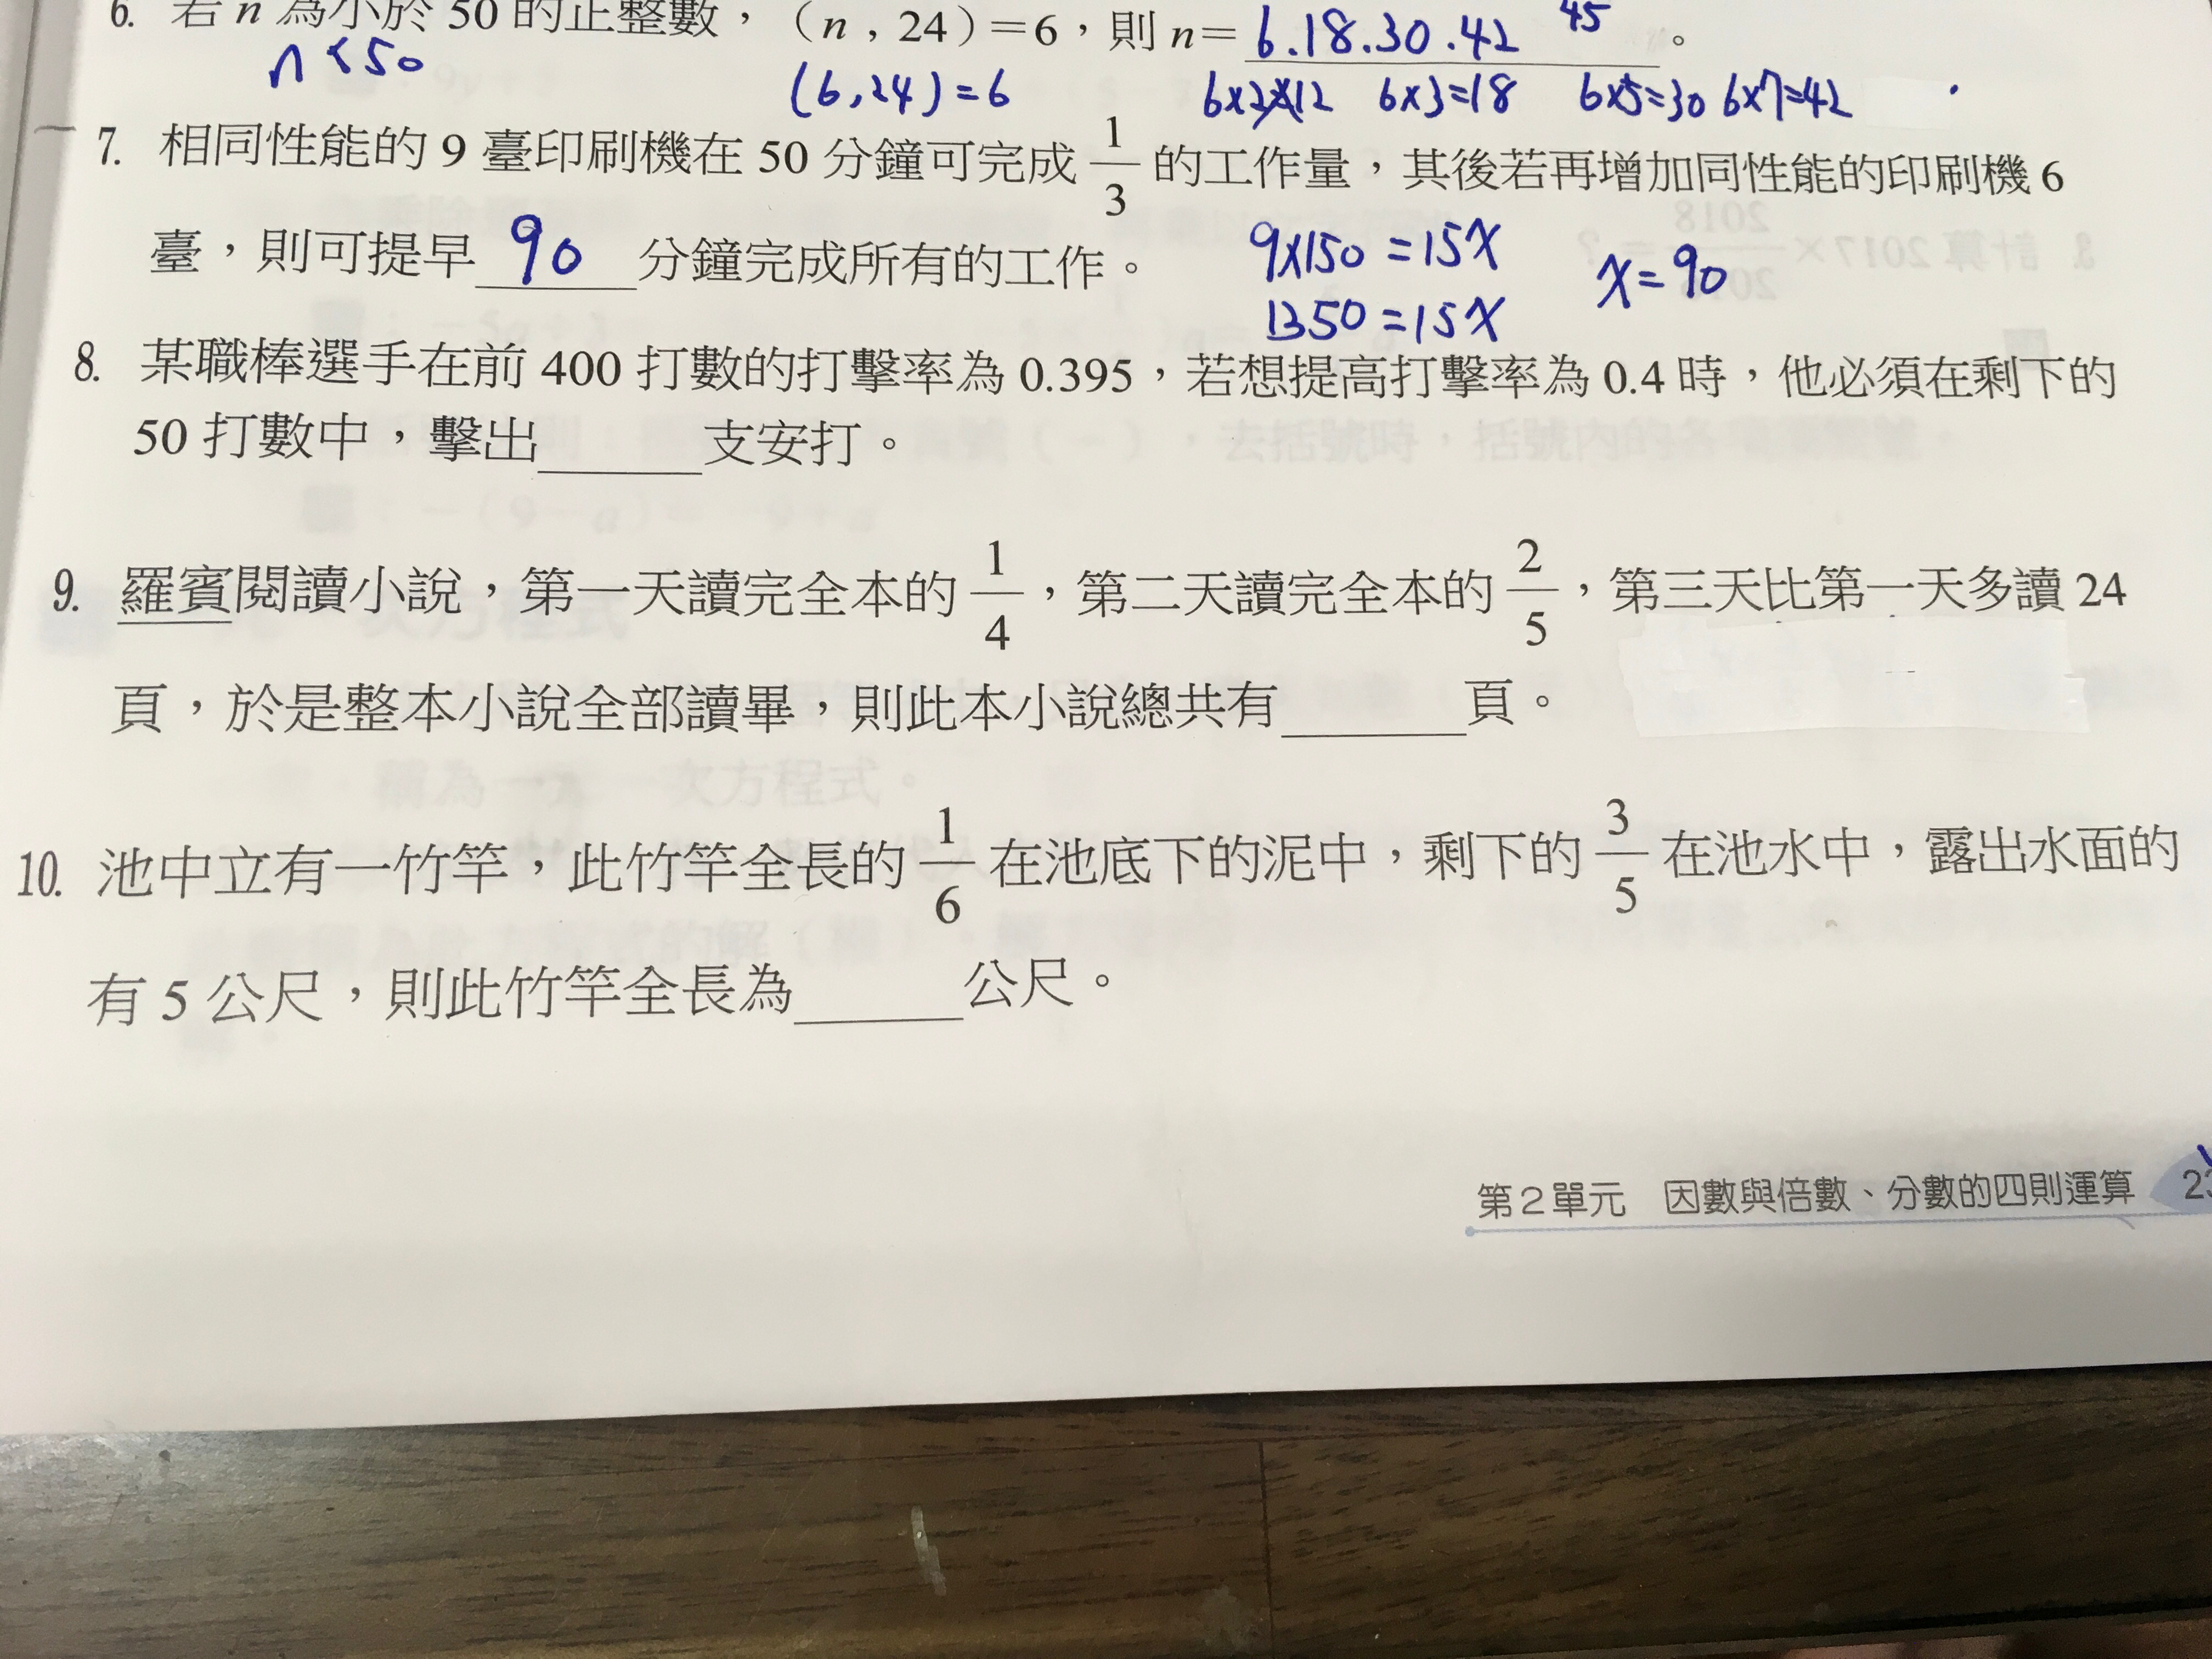 6. 若 n 為小於 50 的正整數，（n，24）＝6，則 n＝6.18.30.42 45。
n<50 (6,24)=6 6x2x12 6x3=18 6x5=30 6x7=42
7. 相同性能的 9 臺印刷機在 50 分鐘可完成 1/3 的工作量，其後若再增加同性能的印刷機 6
臺，則可提早 90 分鐘完成所有的工作。
9x150=15x
1350=15x
x=90
8. 某職棒選手在前 400 打數的打擊率為 0.395，若想提高打擊率為 0.4 時，他必須在剩下的
50 打數中，擊出______支安打。
9. 羅賓閱讀小說，第一天讀完全本的 1/4，第二天讀完全本的 2/5，第三天比第一天多讀 24
頁，於是整本小說全部讀畢，則此本小說總共有______頁。
10. 池中立有一竹竿，此竹竿全長的 1/6 在池底下的泥中，剩下的 3/5 在池水中，露出水面的
有 5 公尺，則此竹竿全長為______公尺。
第2單元 因數與倍數、分數的四則運算